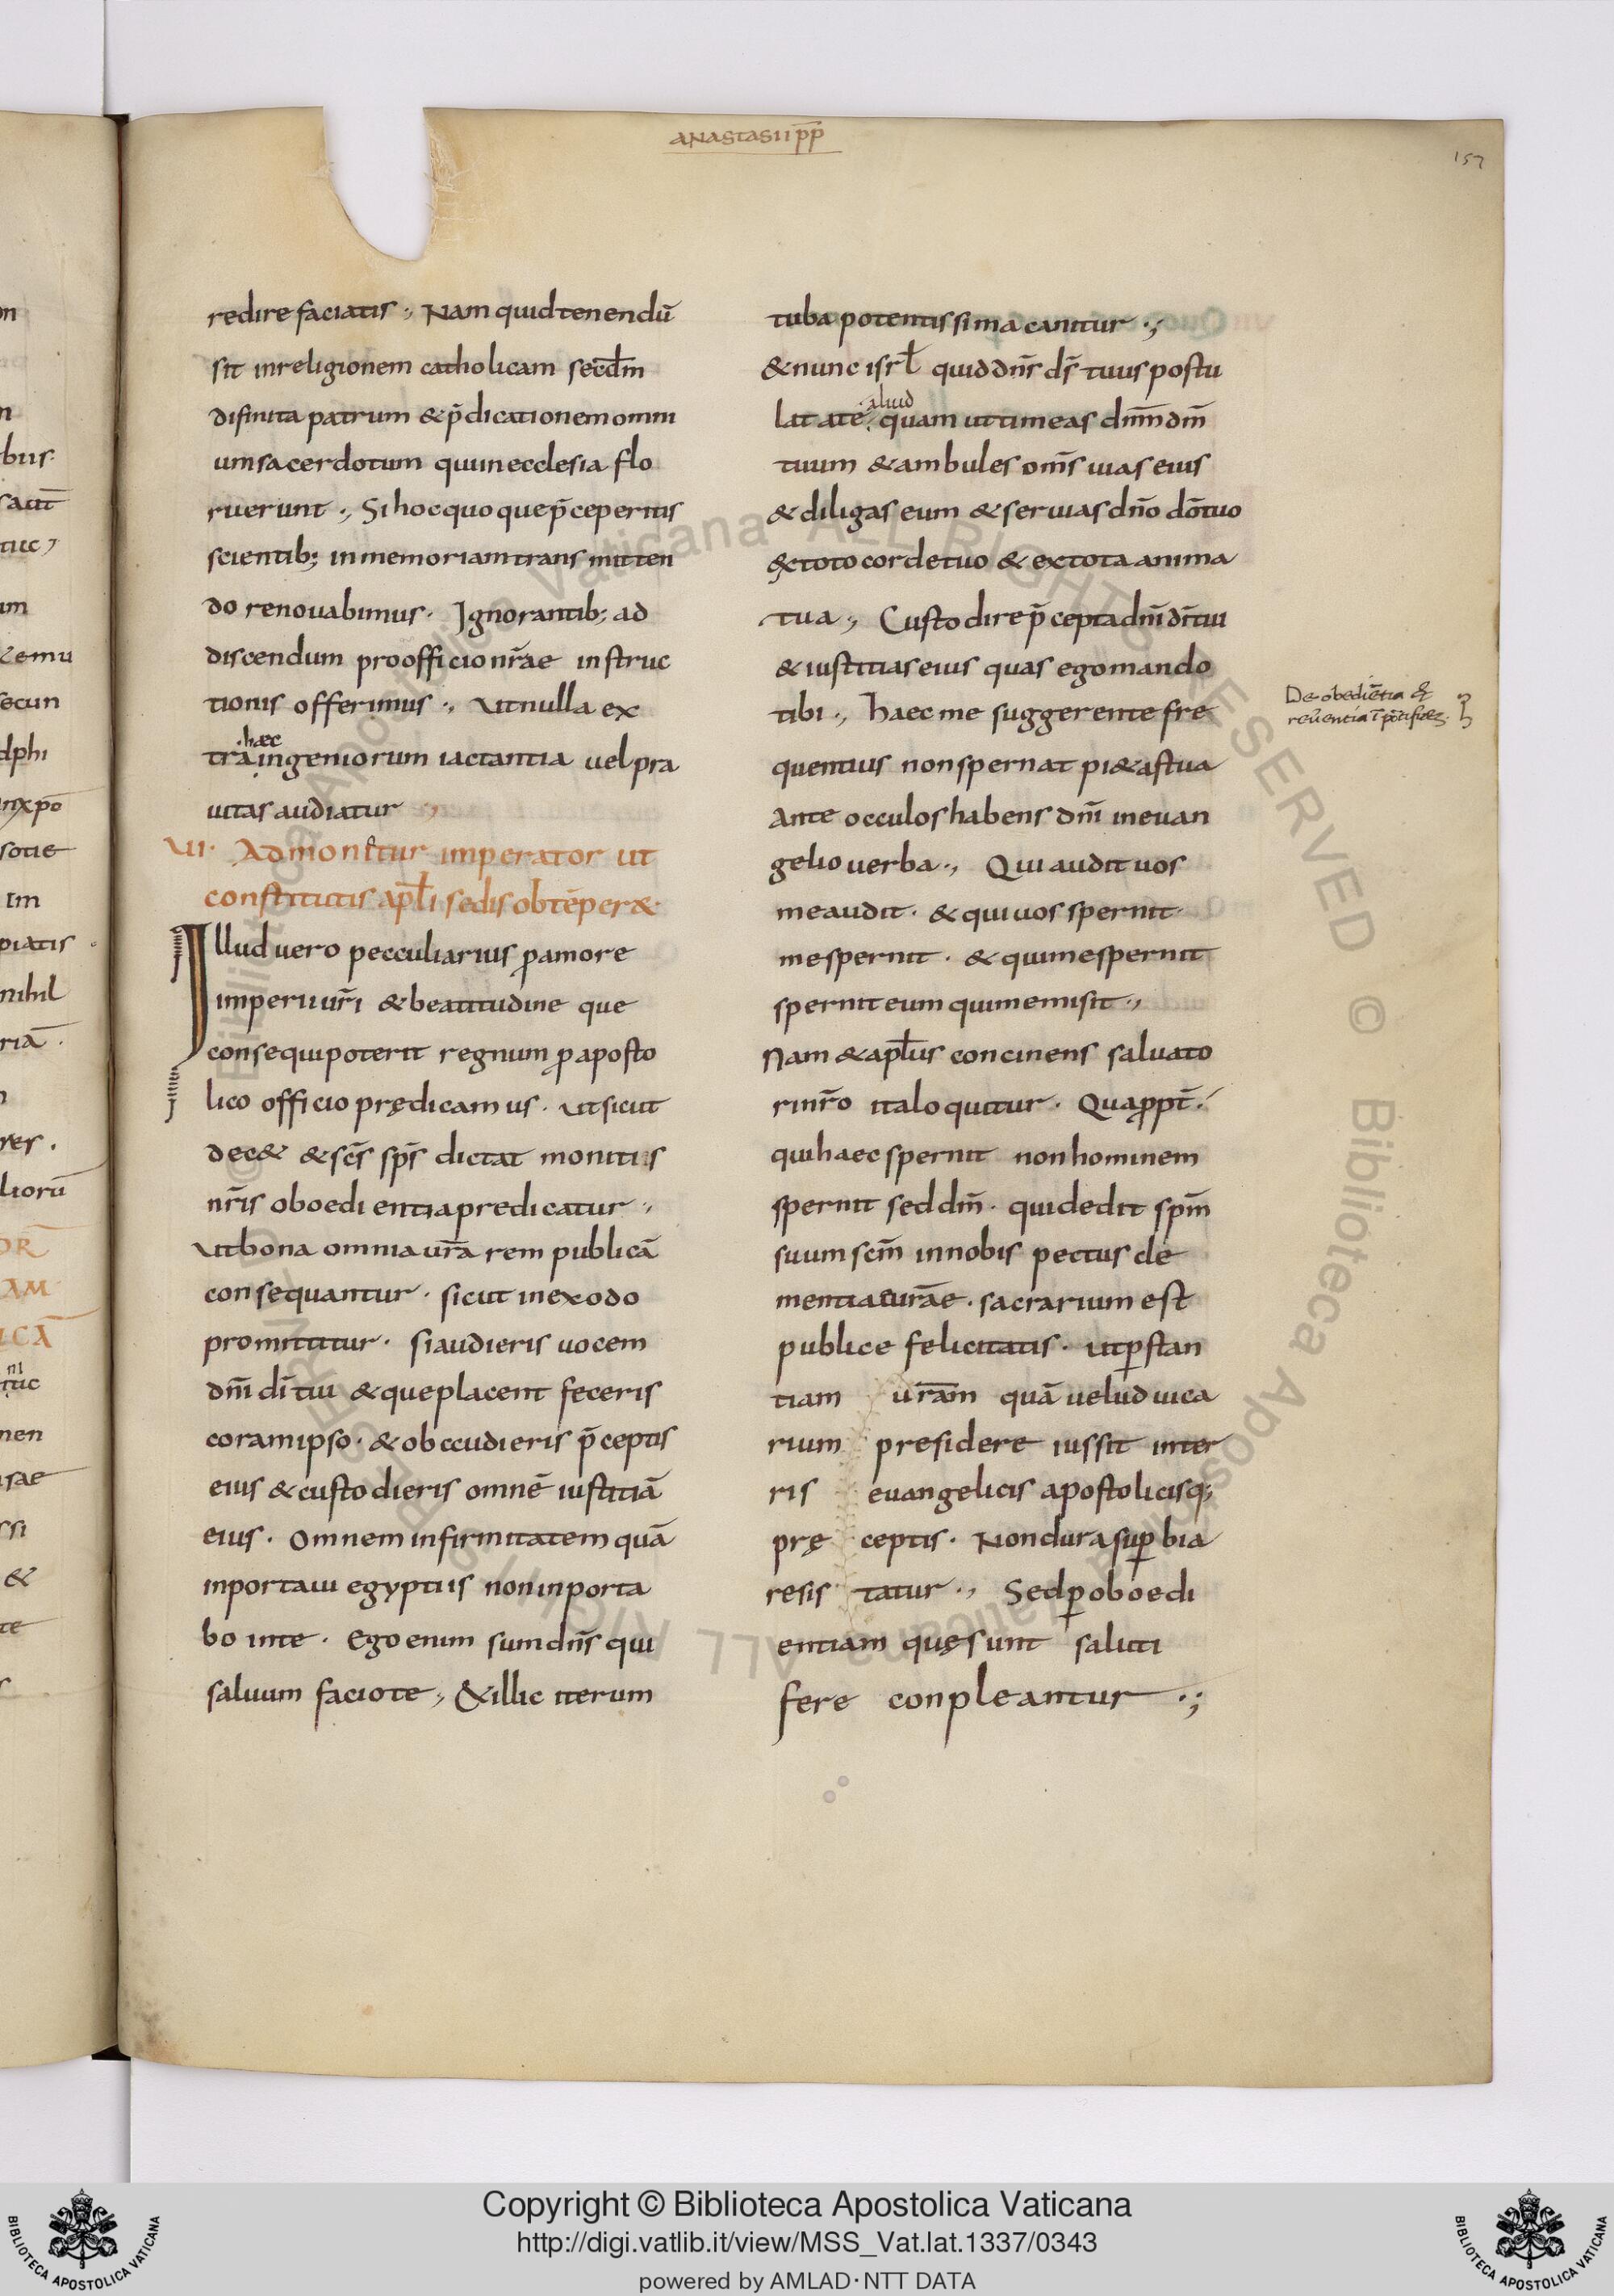 ANASTASII pp̄
157
redire faciatis ., Nam quid tenendū
sit in religionem catholicam secd̄m
difinita patrum & p̄dicationem omni
um sacerdotum qui in ecclesia flo
ruerunt ., Si hoc quoque p̄ceperitis
scientib; in memoriam trans mitten
do renouabimus · Ignorantib; ad
discendum pro officio nr̄ae instruc
tionis offerimus ., ut nulla ex
tra ·hæc ingeniorum iactantia uel pra
uitas audiatur .,
VI· Admonetur imperator ut
constitutis apl̄i sedis obtēper&·
Illud uero pecculiarius p amore
imperii ur̄i & beatitudine que
consequi poterit regnum p aposto
lico officio prędicamus · ut sicut
dec& & sc̄s sp̄s dictat monitis
nr̄is oboedientia predicatur .,
ut bona omnia ur̄a rem publicā
consequantur · sicut in exodo
promittitur · si audieris uocem
dn̄i dī tui & que placent feceris
coram ipso · & obccudieris p̄ceptis
eius & custodieris omnē iustitiā
eius · Omnem infirmitatem quā
inportaui egyptiis non inporta
bo in te · Ego enim sum dn̄s qui
saluum facio te ., & illic iterum
tuba potentissima canitur .,
& nunc isrl̄ quid dn̄s ds̄ tuus postu
lat a te ·aliud quam ut timeas dn̄m dm̄
tuum & ambules om̄s uias eius
& diligas eum & seruias dn̄o dō tuo
ex toto corde tuo & ex tota anima
tua ., Custodire p̄cepta dn̄i dī tui
& iustitias eius quas ego mando
tibi ., haec me suggerente fre
quentius non spernat pi&as tua
ante occulos habens dn̄i in euan
gelio uerba ., Qui audit uos
me audit · & qui uos spernit
me spernit · & qui me spernit
spernit eum qui me misit .,
Nam & apl̄us concinens saluato
ri nr̄o ita loquitur · Quappt̄ ·
qui haec spernit non hominem
spernit sed dm̄ · qui dedit spm̄
suum scm̄ in nobis pectus cle
mentiae ur̄ae · sacrarium est
publice felicitatis · ut p stan
tiam ur̄am quā uelud uica
rium presidere iussit inter
ris euangelicis apostolicisq;
prę ceptis · Non dura supbia
resis tatur ., Sed p oboedi
entiam quę sunt saluti
fere conpleantur .;
De obediētia &
reūentia ī pōtifices.
Copyright © Biblioteca Apostolica Vaticana
http://digi.vatlib.it/view/MSS_Vat.lat.1337/0343
powered by AMLAD · NTT DATA
BIBLIOTECA APOSTOLICA VATICANA
BIBLIOTECA APOSTOLICA VATICANA